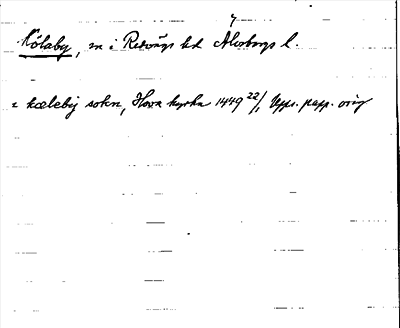 Kölaby, sn i Redvägs hd Älvsborgs l.
i kœleby sokn, Hova kyrka 1449 22/1 Upps. papp. orig